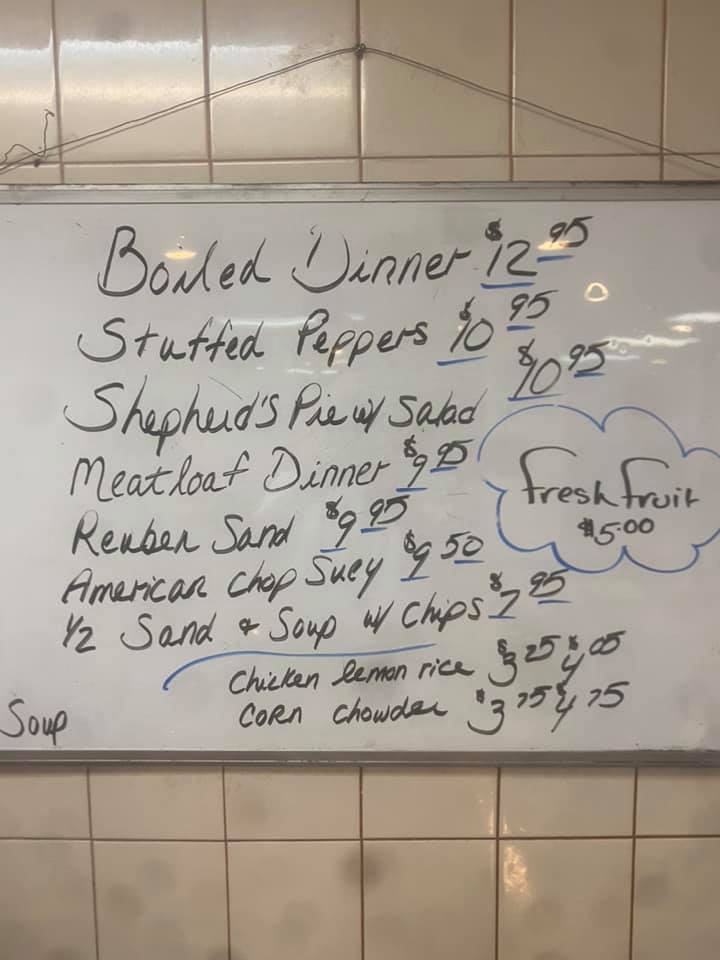 Boiled Dinner $12 95
Stuffed Peppers $10 95
Shepherd's Pie w/ Salad $10 95
Meatloaf Dinner $9 95
Fresh Fruit
$5.00
Reuben Sand $9 95
American Chop Suey $9 50
1/2 Sand & Soup w/ Chips $7 95
Chicken lemon rice $3 25 $4 05
Corn chowder $3 75 $4 75
Soup